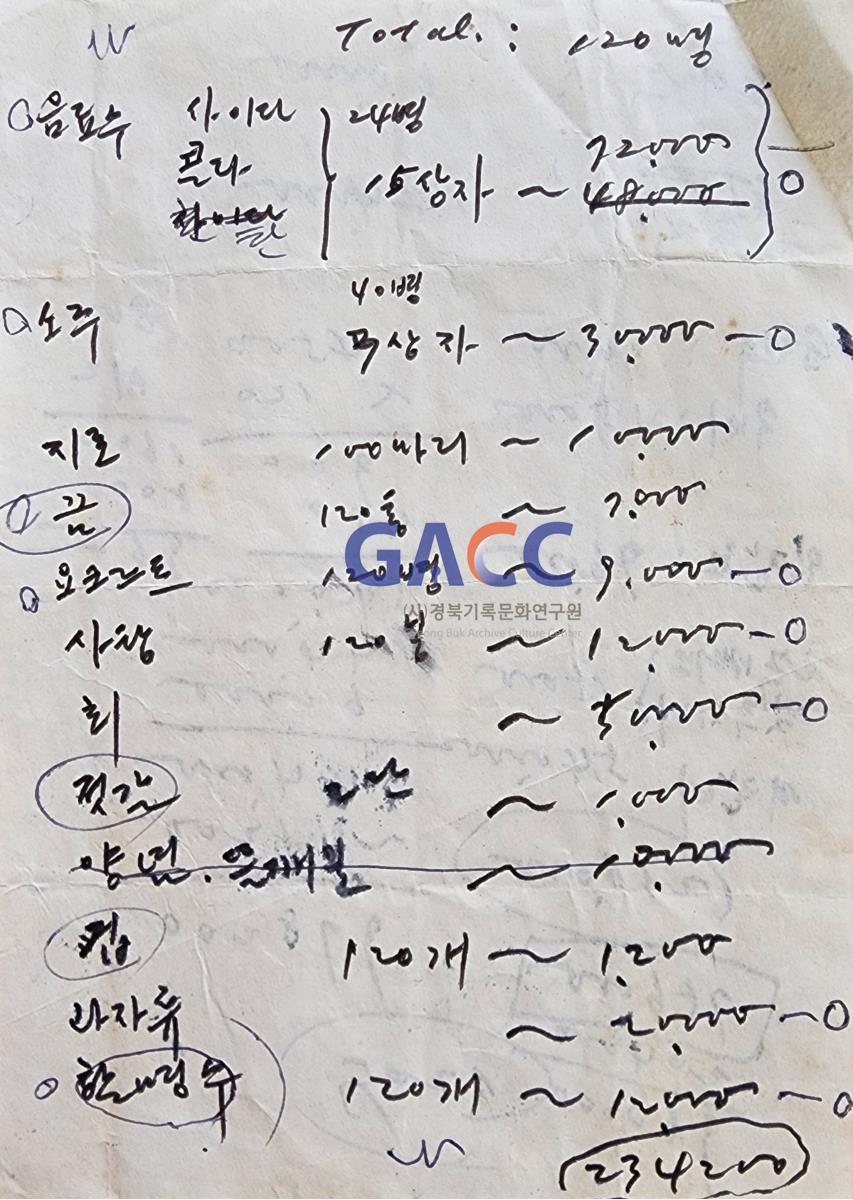 Total : 120명
음료수 사이다 24병 72,000
콜라 15상자 ~ 48,000
환타
소주 40병
두상자 ~ 30,000 - 0
지포 100마리 ~ 10,000
껌 120통 ~ 7,000
요크르트 120병 ~ 9,000 - 0
사탕 120봉 ~ 12,000 - 0
회 ~ 50,000 - 0
젓갈 2단 ~ 1,000
양념. ~ 10,000
컵 120개 ~ 1,200
과자류 ~ 20,000 - 0
120개 ~ 12,000 - 0
234200
GACC
(사)경북기록문화연구원
Gyeong Buk Archive Culture Center